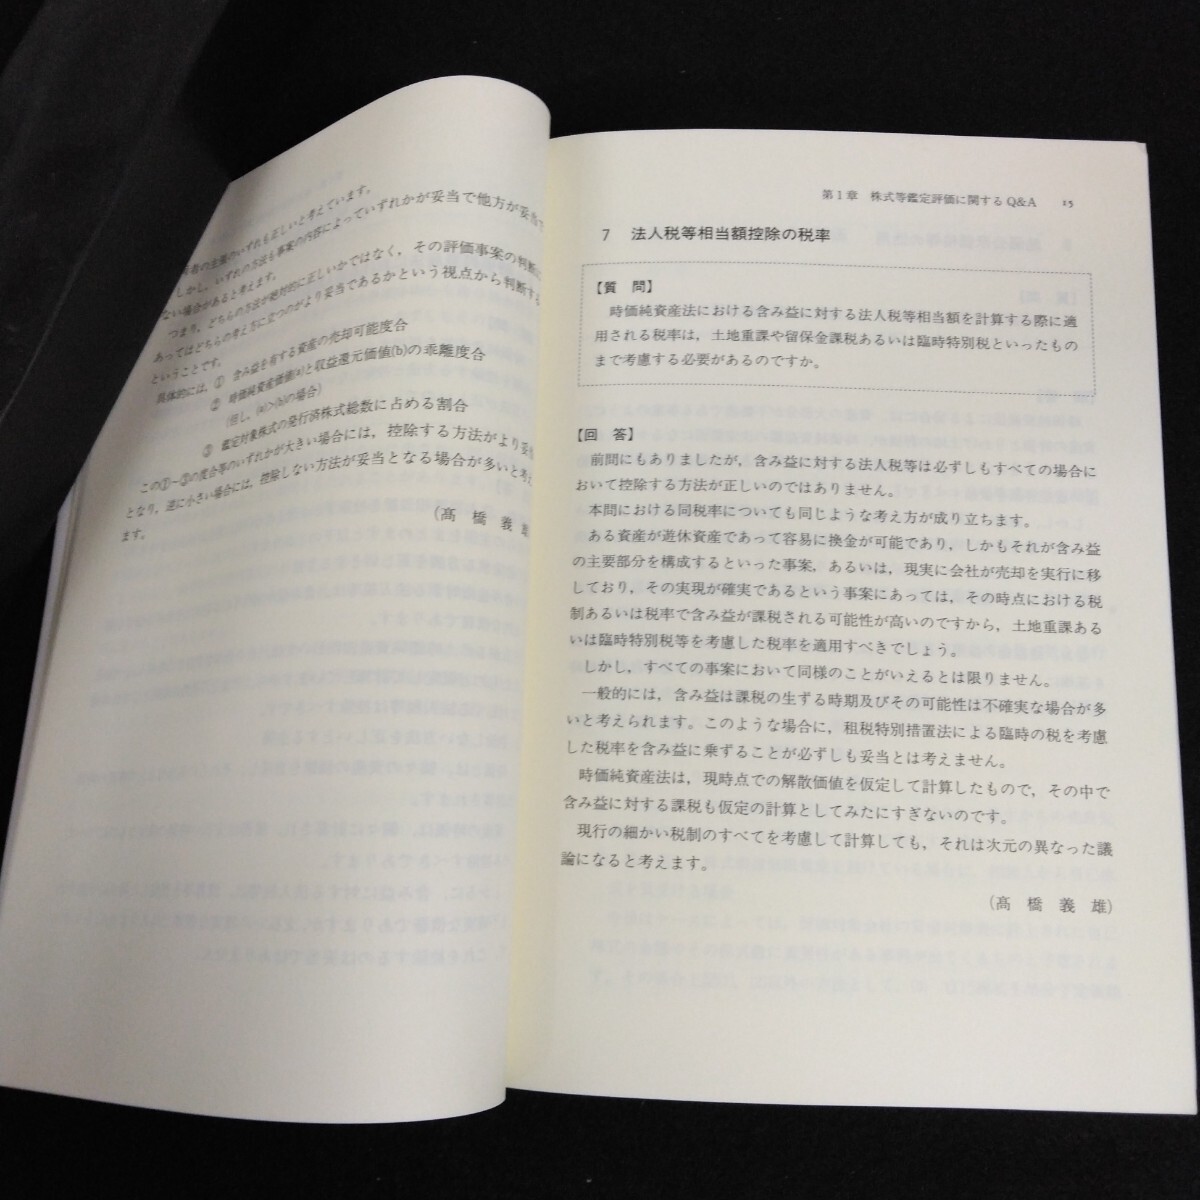 両者の主張のいずれも正しいと考えています。
しかし，いずれの方法も事案の内容によっていずれかが妥当で他方が妥当で
ない場合があると考えます。
つまり，どちらの方法が絶対的に正しいかではなく，その評価事案の判断に
あってはどちらの考え方に立つのがより妥当であるかという視点から判断する
ということです。
具体的には，① 含み益を有する資産の売却可能度合
② 時価純資産価値(a)と収益還元価値(b)の乖離度合
（但し，(a)>(b)の場合）
③ 鑑定対象株式の発行済株式総数に占める割合
この①～③の度合等のいずれかが大きい場合には，控除する方法がより妥当
となり，逆に小さい場合には，控除しない方法が妥当となる場合が多いと考え
ます。
（髙 橋 義 雄
第1章 株式等鑑定評価に関するQ&A 15
7 法人税等相当額控除の税率
【質 問】
時価純資産法における含み益に対する法人税等相当額を計算する際に適
用される税率は，土地重課や留保金課税あるいは臨時特別税といったもの
まで考慮する必要があるのですか。
【回 答】
前問にもありましたが，含み益に対する法人税等は必ずしもすべての場合に
おいて控除する方法が正しいのではありません。
本問における同税率についても同じような考え方が成り立ちます。
ある資産が遊休資産であって容易に換金が可能であり，しかもそれが含み益
の主要部分を構成するといった事案，あるいは，現実に会社が売却を実行に移
しており，その実現が確実であるという事案にあっては，その時点における税
制あるいは税率で含み益が課税される可能性が高いのですから，土地重課ある
いは臨時特別税等を考慮した税率を適用すべきでしょう。
しかし，すべての事案において同様のことがいえるとは限りません。
一般的には，含み益は課税の生ずる時期及びその可能性は不確実な場合が多
いと考えられます。このような場合に，租税特別措置法による臨時の税を考慮
した税率を含み益に乗ずることが必ずしも妥当とは考えません。
時価純資産法は，現時点での解散価値を仮定して計算したもので，その中で
含み益に対する課税も仮定の計算としてみたにすぎないのです。
現行の細かい税制のすべてを考慮して計算しても，それは次元の異なった議
論になると考えます。
（髙 橋 義 雄）